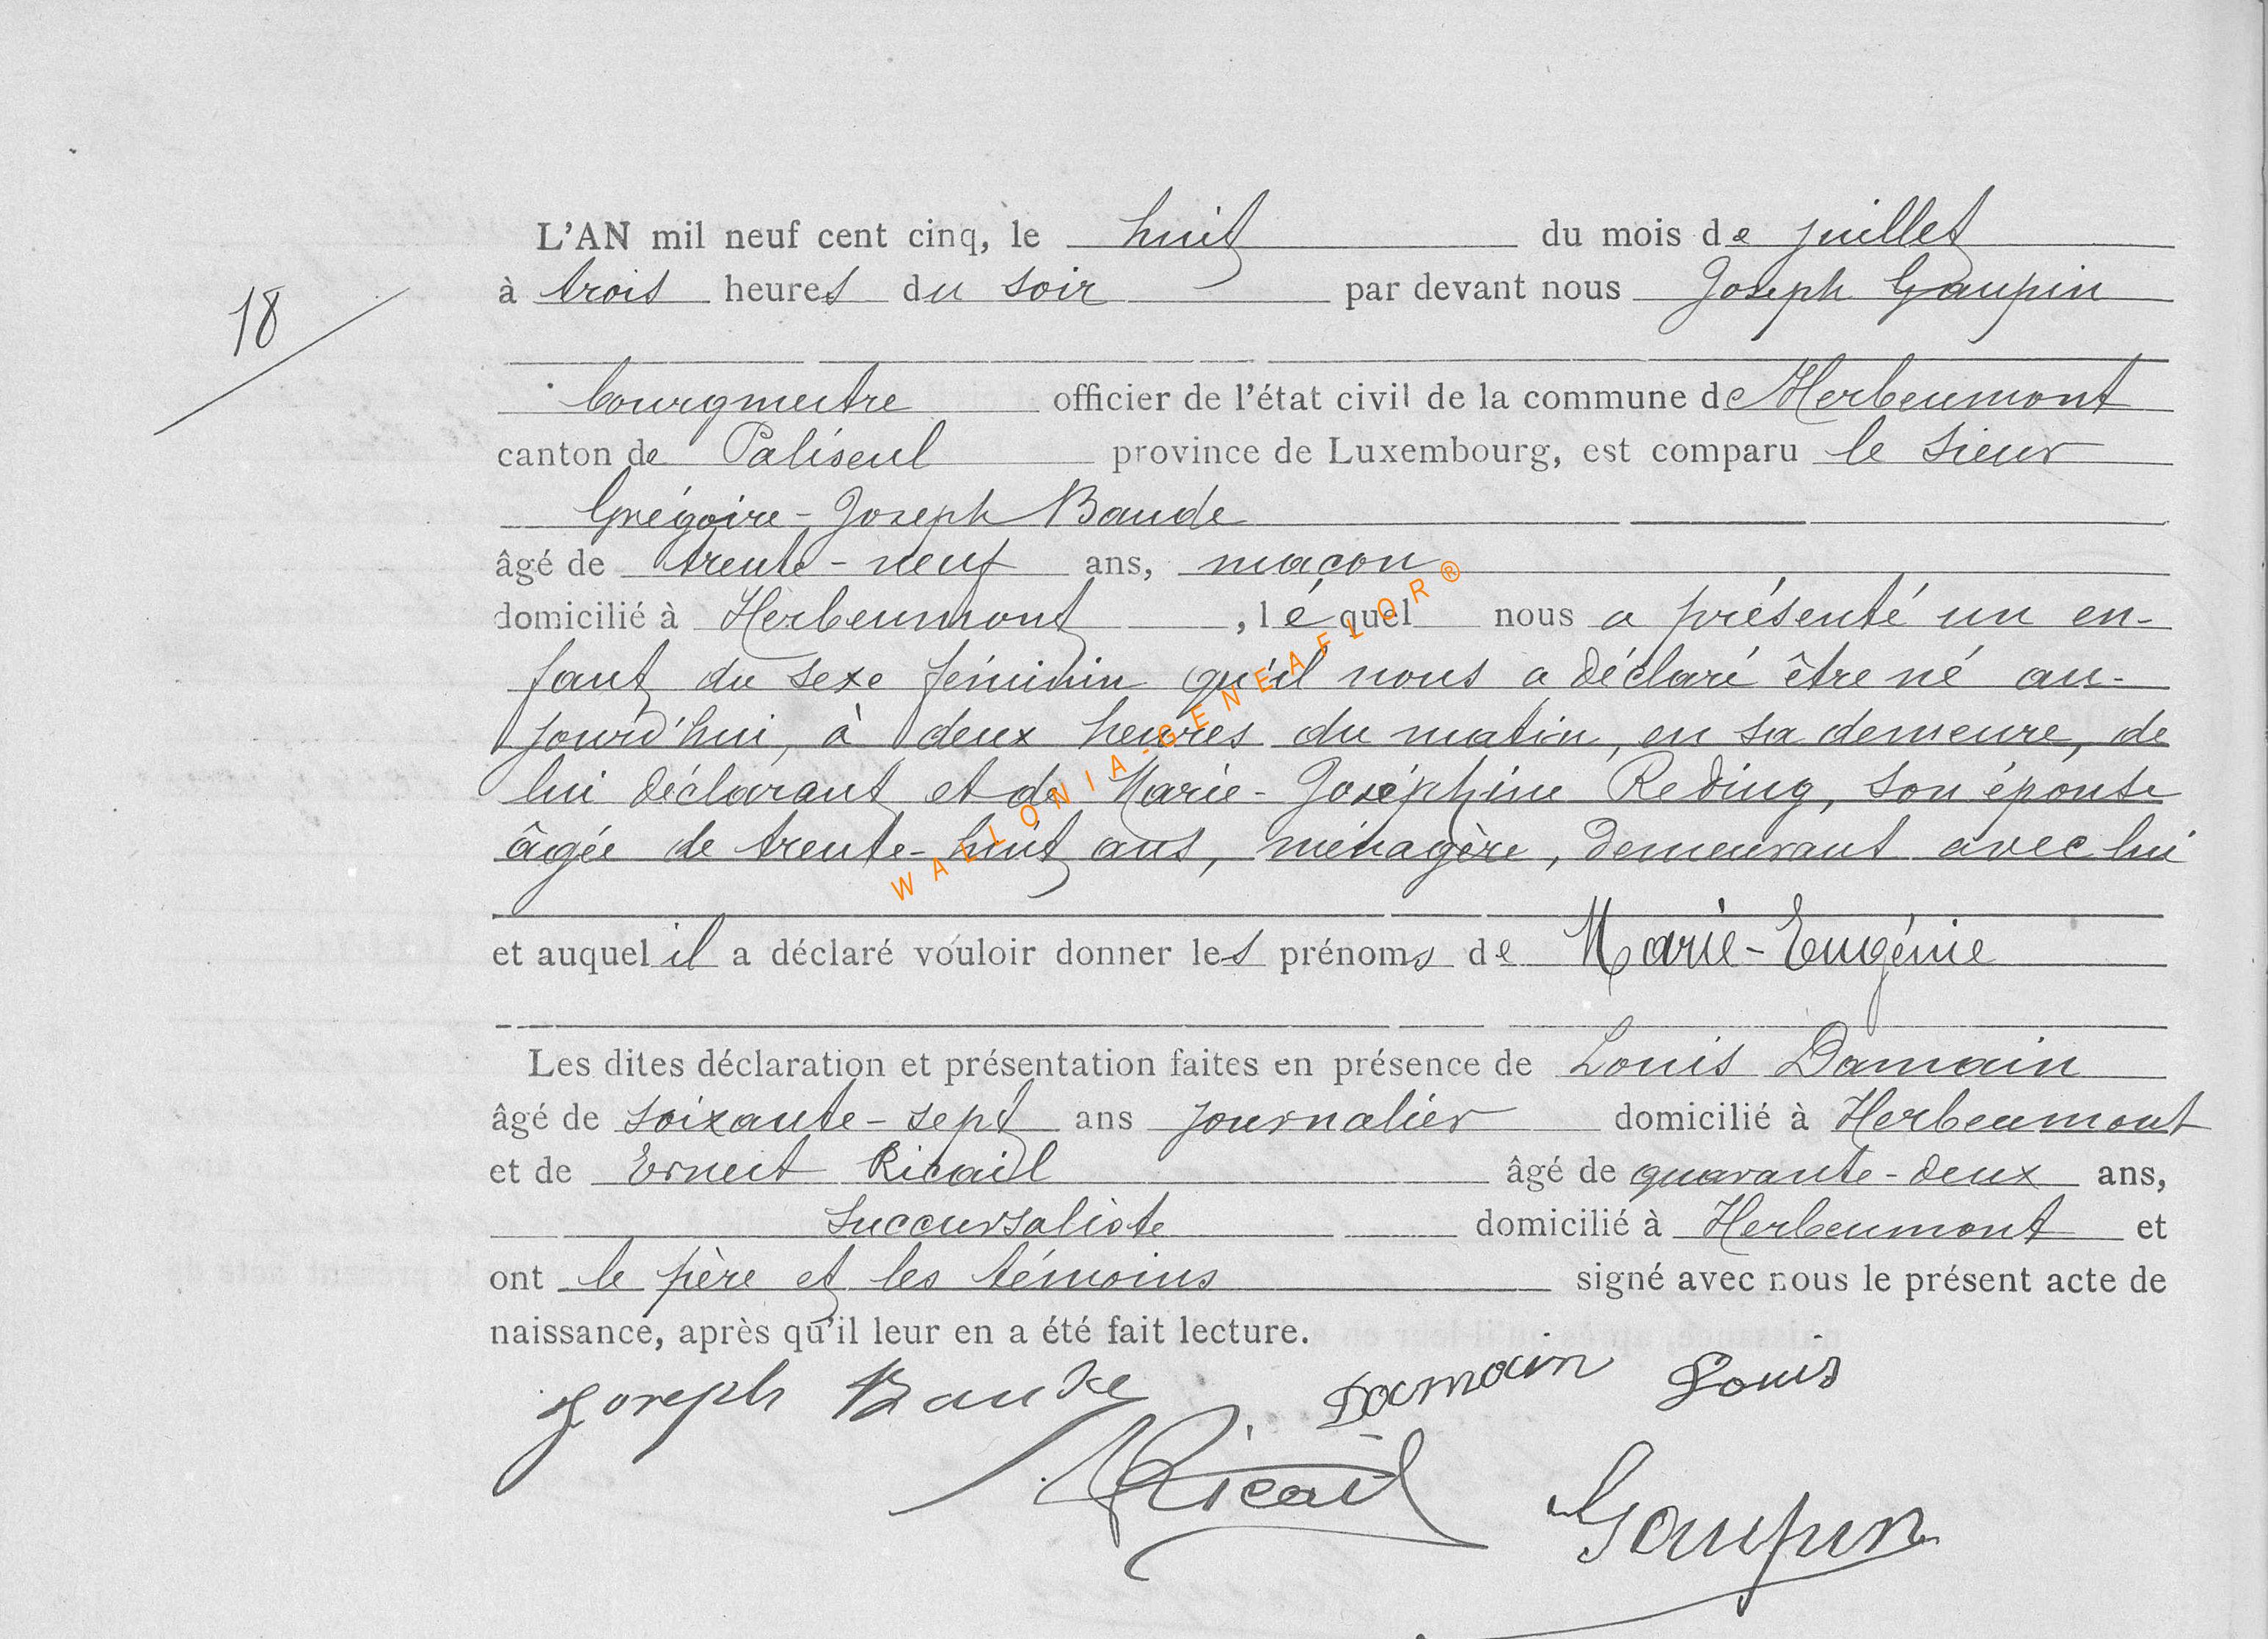 L'AN mil neuf cent cinq, le huit du mois de juillet
18
à trois heures du soir par devant nous Joseph Gaupin
bourgmestre officier de l'état civil de la commune de Herbeumont
canton de Paliseul province de Luxembourg, est comparu le sieur
Grégoire-Joseph Baude
âgé de trente-neuf ans, maçon
domicilié à Herbeumont, lequel nous a présenté un en-
fant du sexe féminin qu'il nous a déclaré être né au-
jourd'hui, à deux heures du matin, en sa demeure, de
lui déclarant et de Marie-Joséphine Reding, son épouse
âgée de trente-huit ans, ménagère, demeurant avec lui
WALLONIA-GENEAFLOR®
et auquel il a déclaré vouloir donner les prénoms de Marie-Eugénie
Les dites déclaration et présentation faites en présence de Louis Damain
âgé de soixante-sept ans journalier domicilié à Herbeumont
et de Ernest Ricail âgé de quarante-deux ans,
succursaliste domicilié à Herbeumont et
ont le père et les témoins signé avec nous le présent acte de
naissance, après qu'il leur en a été fait lecture.
Joseph Baude Damain Louis
Ricail Gaupin